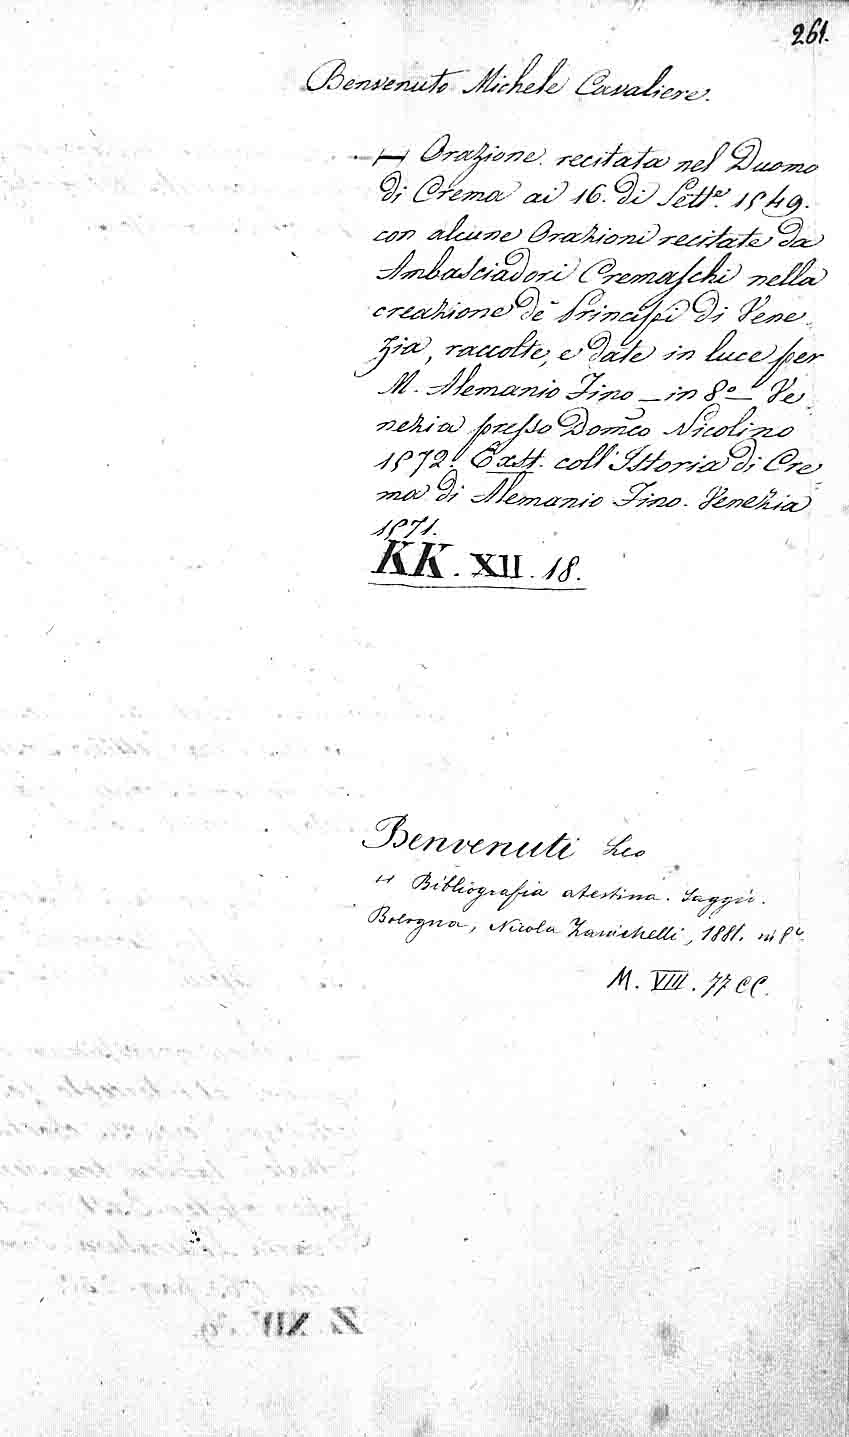 261.
Benvenuto Michele Cavaliere.
— Orazione recitata nel Duomo
di Crema ai 16. di Sett.e 1549.
con alcune Orazioni recitate da
Ambasciadori Cremaschi nella
creazione de' Principi di Vene
zia, raccolte, e date in luce per
M. Alemanio Fino — in 8.o — Ve
nezia presso Domco Nicolino
1572. Exst. coll' Istoria di Cre
ma di Alemanio Fino. Venezia
1571.
KK. XII. 18.
Benvenuti Leo
Bibliografia atestina. Saggio.
Bologna, Nicola Zanichelli, 1881. in 8o.
M. VIII. 77 CC.